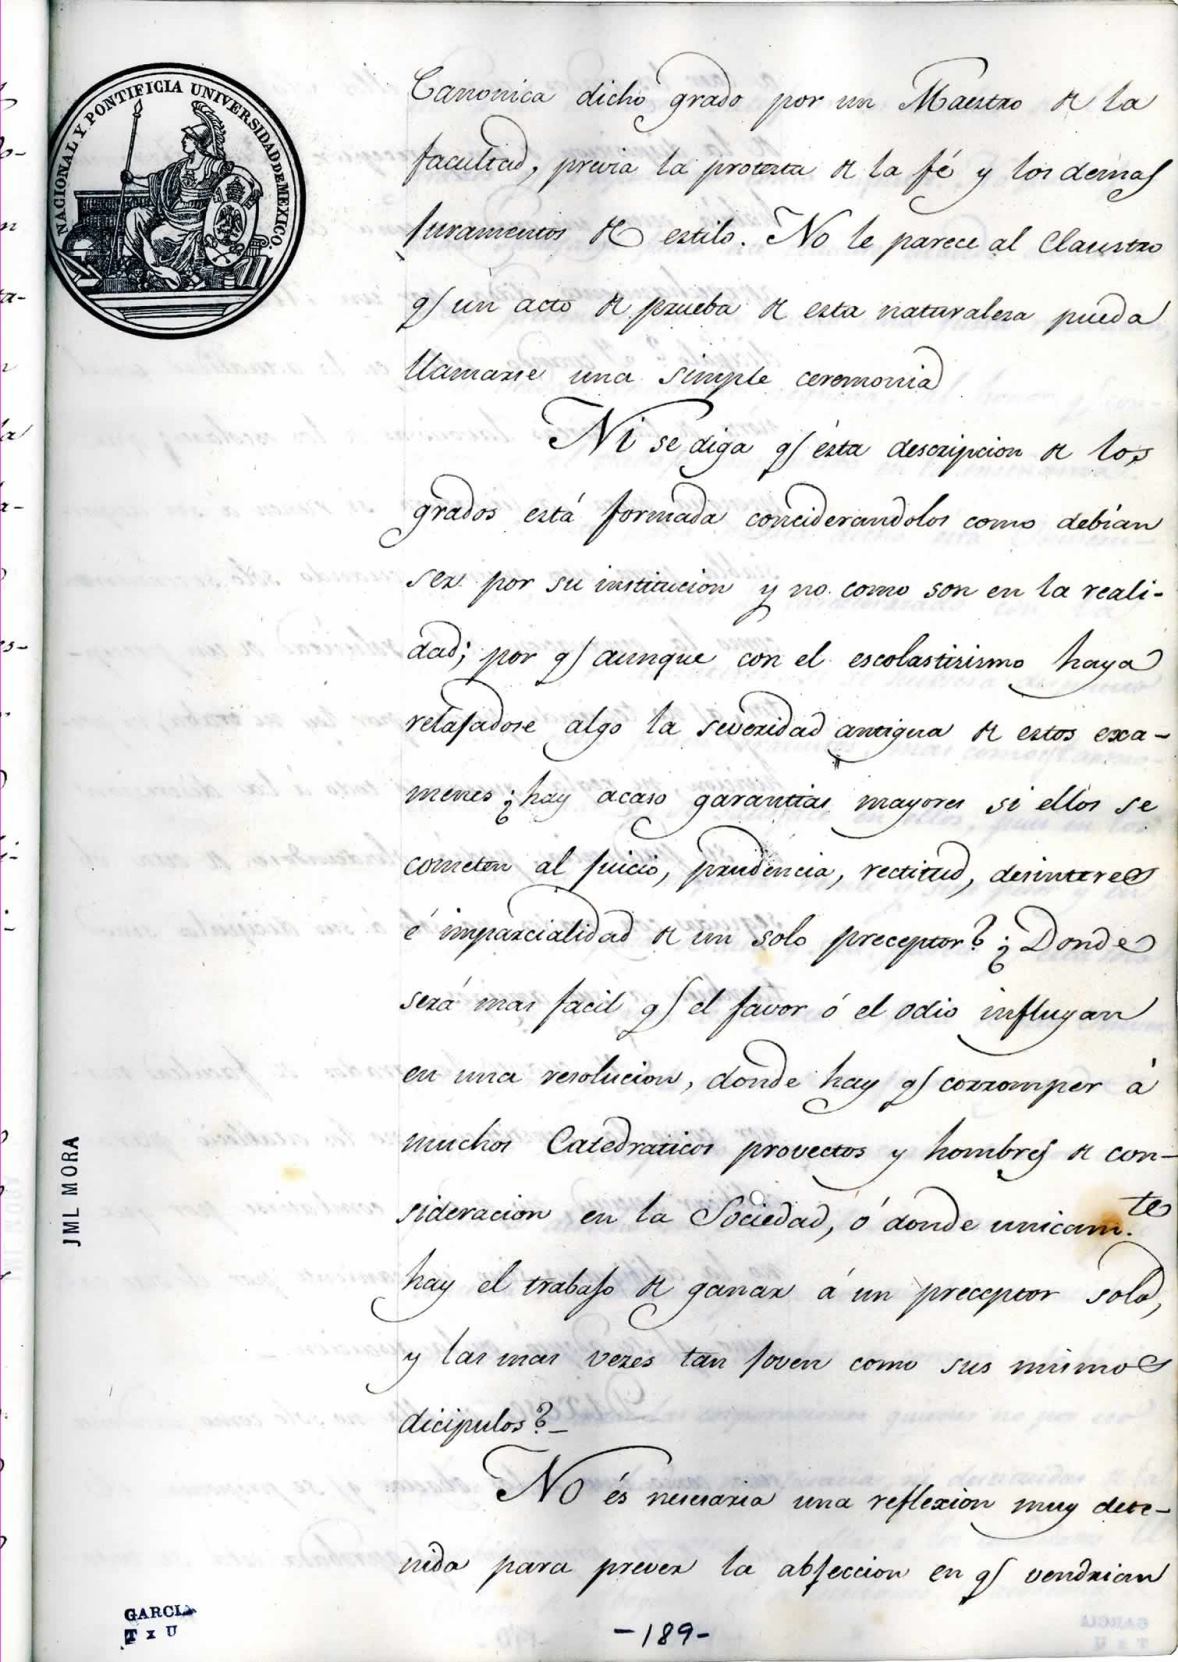 NACIONAL Y PONTIFICIA UNIVERSIDAD DE MEXICO.
Canonica dicho grado por un Maestro de la
facultad, previa la protesta de la fé y los demas
juramentos de estilo. No le parece al Claustro
q un acto de prueba de esta naturalesa pueda
llamarse una simple ceremonia
Ni se diga q ésta descripcion de los
grados está formada conciderandolos como debian
ser por su institucion y no como son en la reali-
dad; por q aunque con el escolastisismo haya
relajadose algo la severidad antigua de estos exa-
menes ¿hay acaso garantias mayores si ellos se
cometen al juicio, prudencia, rectitud, desinteres
é imparcialidad de un solo preceptor? ¿Donde
será mas facil q el favor ó el odio influyan
en una resolucion, donde hay q corromper á
muchos Catedraticos provectos y hombres de con-
sideracion en la Sociedad, ó donde unicam.te
hay el trabajo de ganar á un preceptor solo,
y las mas veses tan joven como sus mismos
dicipulos?_
No és nesesaria una reflexion muy dete-
nida para prever la abjeccion en q vendrian
JML MORA
GARCIA
T x U
-189-